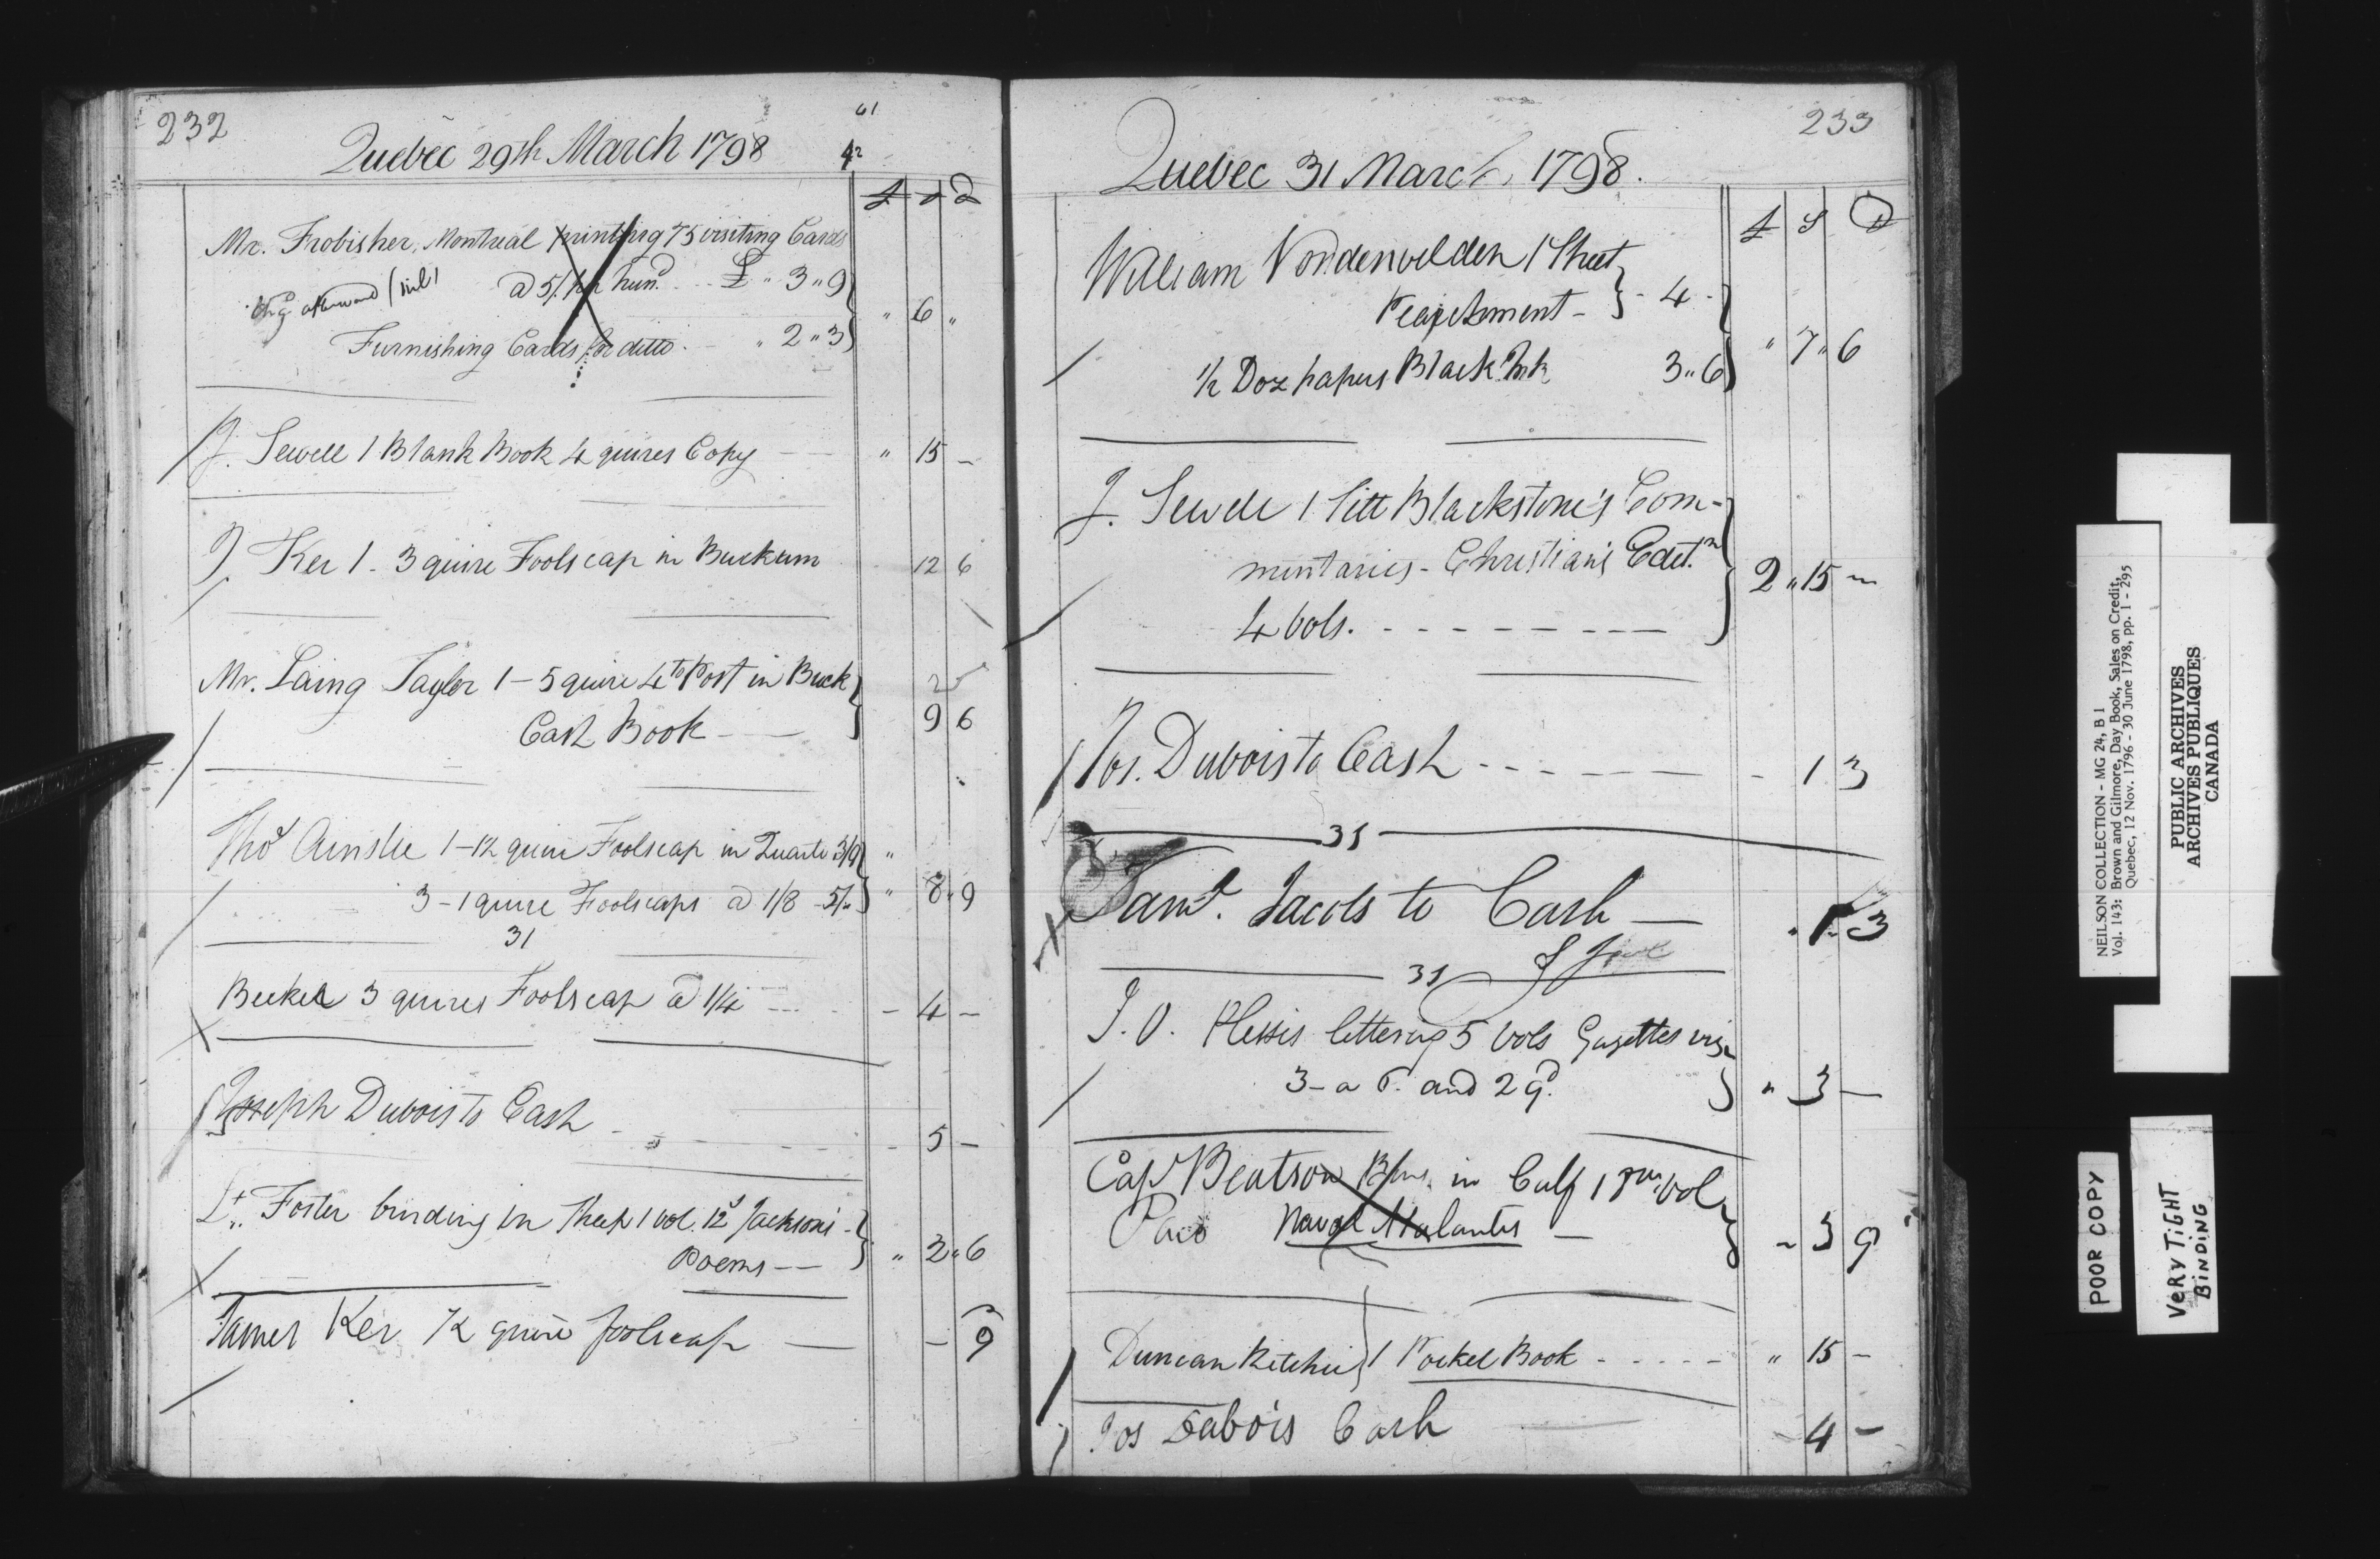 232
61
Quebec 29th March 1798
42
£ s d
Mr. Frobisher, Montreal printing 75 visiting Cards
a 5/. pr hund. £ " 3 " 9
" 6 "
Furnishing Cards for ditto. " 2 " 3
J. Sewell 1 Blank Book 4 quires Copy " 15 -
J. Ker 1 - 3 quire Foolscap in Buckum 12 6
Mr. Laing Taylor 1 - 5 quire 4to Post in Buck
Cash Book 9 6
Thos Ainslie 1 - 1/2 quire Foolscap in Quarto 3/9 "
3 - 1 quire Foolscaps a 1/8 - 5/" " 8 " 9
31
Beeker 3 quires Foolscap a 1/4 - 4 -
Joseph Dubois to Cash - 5 -
Lt. Foster binding in Sheep 1 vol. 12s Jackson's
Poems - - " 2 " 6
James Ker 1/2 quire foolscap - - 9
233
Quebec 31 March 1798.
£ S D
William Vondenvelden 1 Sheet
Parchment - - 4 -
" 7 " 6
1/2 Doz papers Black Ink 3 " 6
J. Sewell 1 Sett Blackstone's Com-
mentaries - Christian's Edit.n
2 " 15 -
4 Vols.
Jos. Dubois to Cash - 1 3
31
Saml. Jacobs to Cash - " 1 " 3
31
J. O. Plessis lettering 5 Vols Gazettes viz
3 - a 6. and 2 9d. " 3 -
Capt Beatson in Calf 1 Vol
Paid Naval Atalantis - - 3 9
Duncan Ritchie 1 Pocket Book - - - - - " 15 -
Jos Dubois Cash - 4 -
NEILSON COLLECTION - MG 24, B 1
Vol. 143: Brown and Gilmore, Day Book, Sales on Credit,
Quebec, 12 Nov. 1796 - 30 June 1798, pp. 1 - 295
PUBLIC ARCHIVES
ARCHIVES PUBLIQUES
CANADA
POOR COPY
VERY TIGHT
BINDING